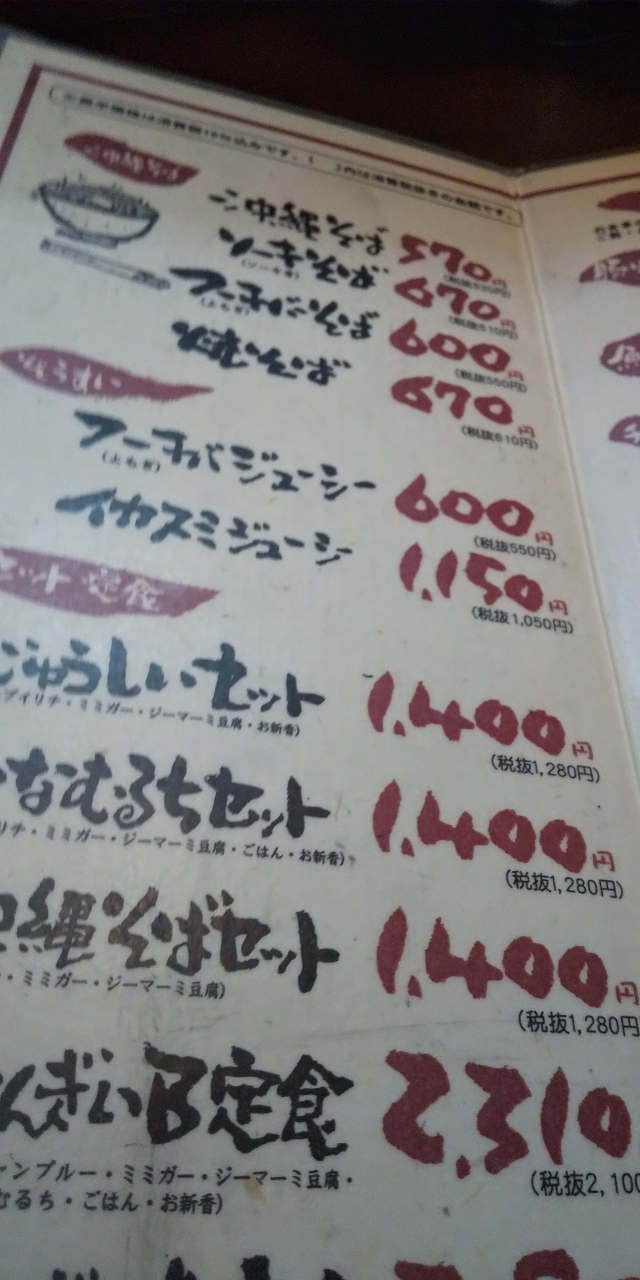 は消費税10%込みです。( )内は消費税抜きの金額です。
沖縄そば
沖縄そば 570円
(税抜520円)
ソーキそば 670円
(ソーキ骨)
(税抜610円)
フーチバーそば 600円
(よもぎ)
(税抜550円)
焼そば 670円
(税抜610円)
フーチバジューシー 600円
(よもぎ)
(税抜550円)
イカスミジューシー 1,150円
(税抜1,050円)
セット 定食
じゅうしぃセット 1,400円
イリチ・ミミガー・ジーマーミ豆腐・お新香)
(税抜1,280円)
なむるちセット 1,400円
リチ・ミミガー・ジーマーミ豆腐・ごはん・お新香)
(税抜1,280円)
縄そばセット 1,400円
・ミミガー・ジーマーミ豆腐)
(税抜1,280円)
んぎぃB定食 2,310
ャンプルー・ミミガー・ジーマーミ豆腐・
むるち・ごはん・お新香)
(税抜2,100